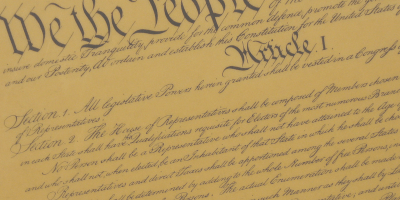 We the People of the
insure domestic Tranquility, provide for the common defence, promote the
and our Posterity, do ordain and establish this Constitution for the United States of
Article. I.
Section. 1. All legislative Powers herein granted shall be vested in a Congress
of Representatives.
Section. 2. The House of Representatives shall be composed of Members chosen
in each State shall have Qualifications requisite for Electors of the most numerous Branch
No Person shall be a Representative who shall not have attained to the Age of
and who shall not, when elected, be an Inhabitant of that State in which he shall be chosen
Representatives and direct Taxes shall be apportioned among the several States
shall be determined by adding to the whole Number of free Persons,
Persons. The actual Enumeration shall be made
such Manner as they shall by